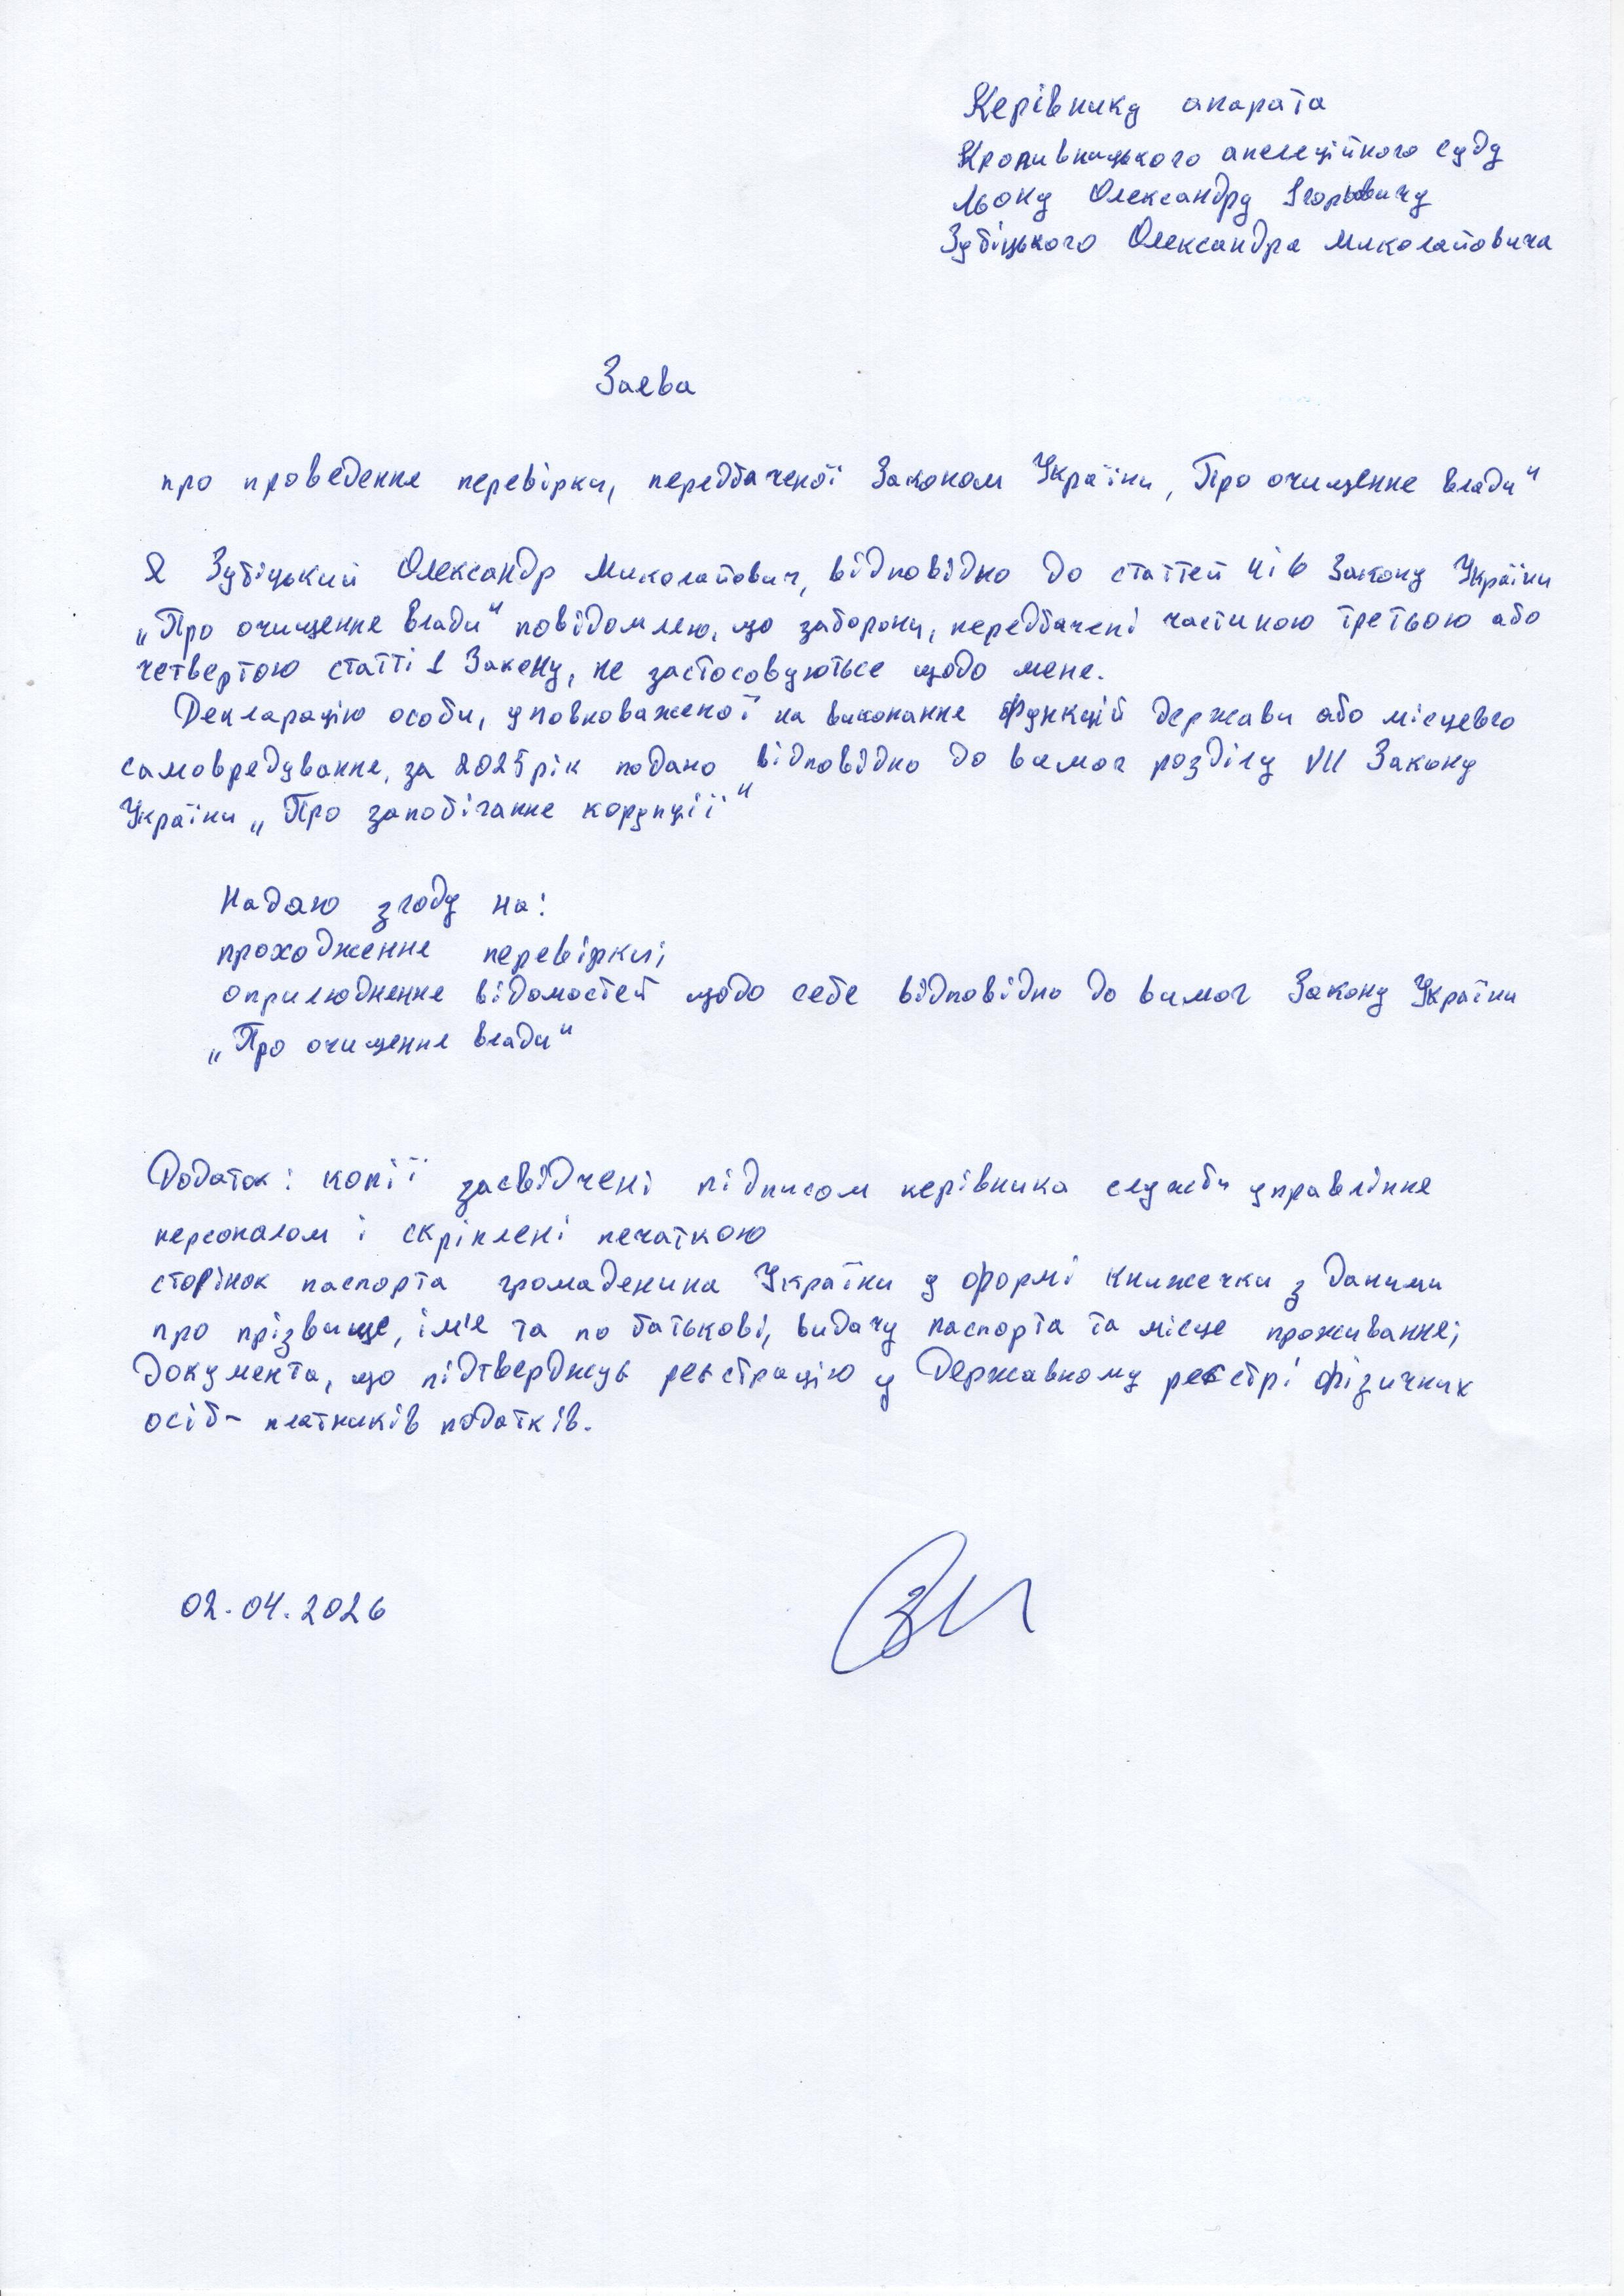 Керівнику апарата
Кропивницького апеляційного суду
Льону Олександру Ігоровичу
Зубіцького Олександра Миколайовича
Заява
про проведення перевірки, передбаченої Законом України „Про очищення влади"
Я Зубіцький Олександр Миколайович, відповідно до статтей 4 і 6 Закону України
„Про очищення влади" повідомляю, що заборони, передбачені частиною третьою або
четвертою статті 1 Закону, не застосовуються щодо мене.
Декларацію особи, уповноваженої на виконання функцій держави або місцевго
самоврядування, за 2025 рік подано відповідно до вимог розділу VII Закону
України „Про запобігання корупції"
Надаю згоду на:
проходження перевірки;
оприлюднення відомостей щодо себе відповідно до вимог Закону України
„Про очищення влади"
Додаток: копії засвідчені підписом керівника служби управління
персоналом і скріплені печаткою
сторінок паспорта громадянина України у формі книжечки з даними
про прізвище, ім'я та по батькові, видачу паспорта та місце проживання;
документа, що підтверджує реєстрацію у Державному реєстрі фізичних
осіб - платників податків.
02.04.2026